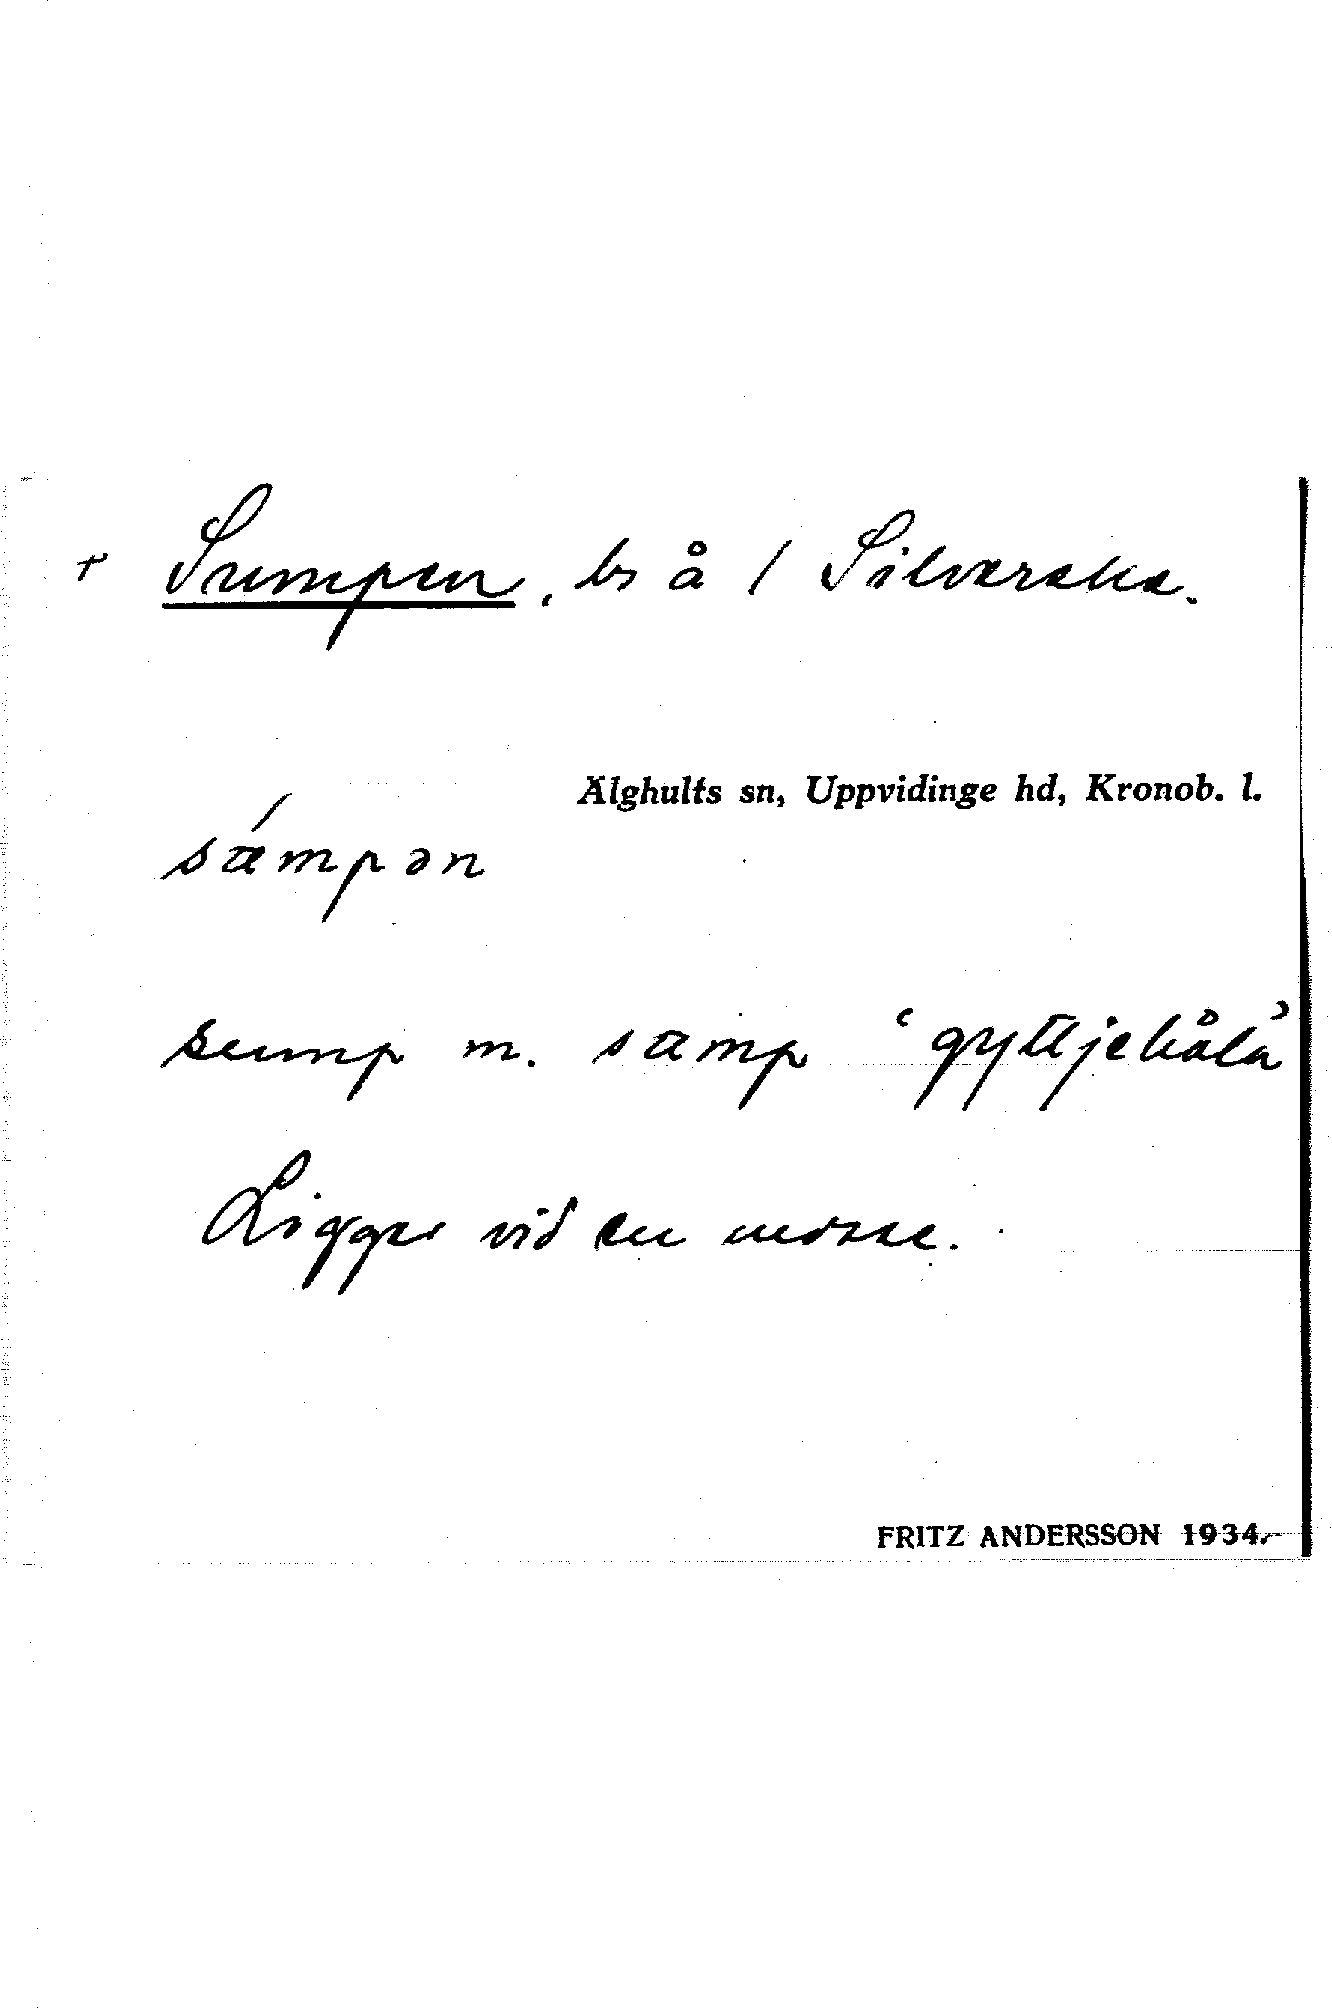 + Sumpen, ls å 1 Silveraka.
Älghults sn, Uppvidinge hd, Kronob. l.
sæmpən
sump m. sæmp ‘gyttjehåla’
Ligger vid en mosse.
FRITZ ANDERSSON 1934.